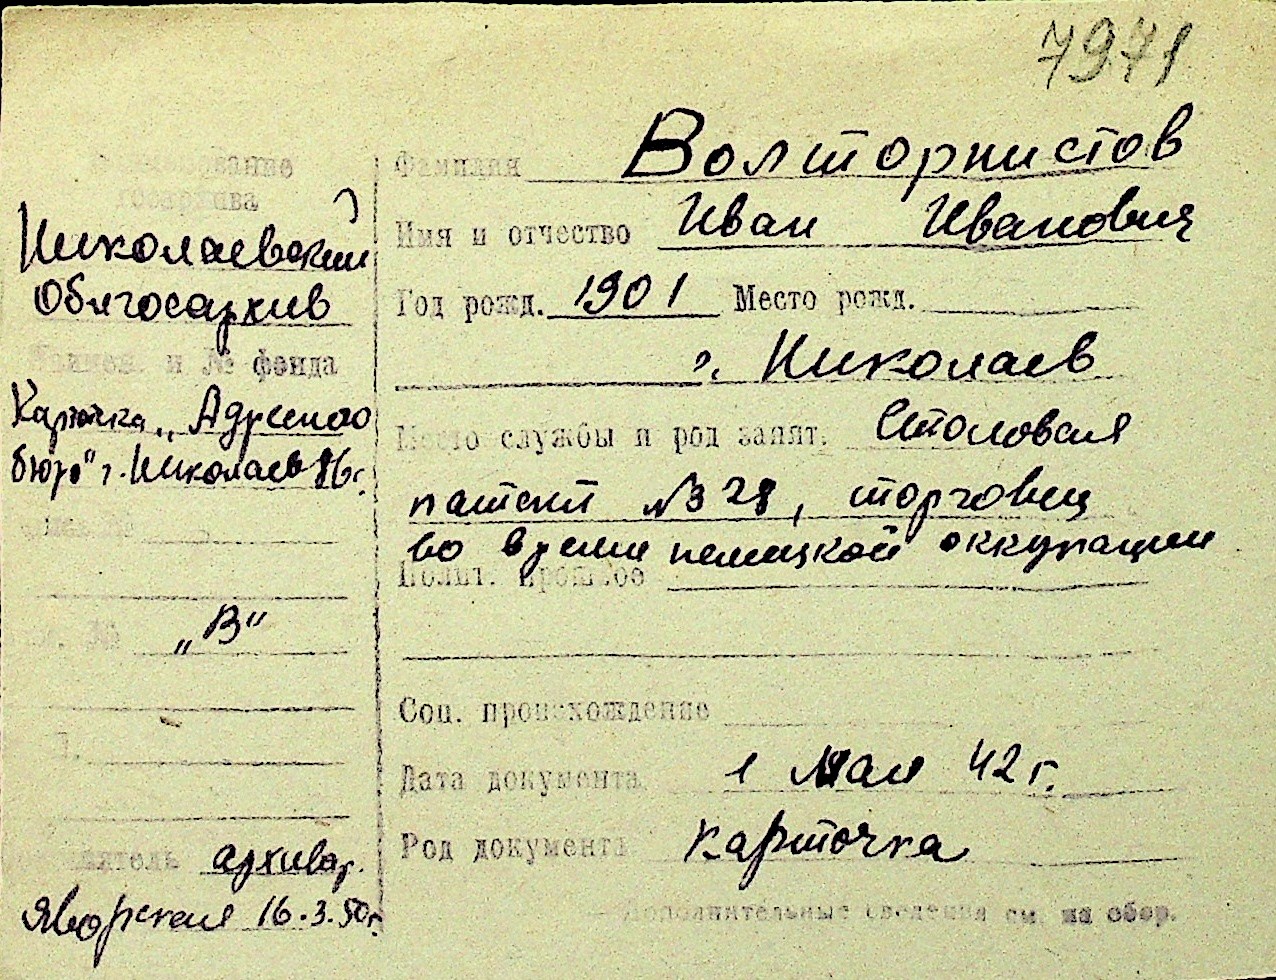 7971
Наименование
госархива
Николаевский
Облгосархив
Наимен. и № фонда
Карточка „Адресного
бюро" г. Николаев
„В"
архивар.
Яворская 16.3.50г.
Фамилия Волторнистов
Имя и отчество Иван Иванович
Год рожд. 1901 Место рожд.
г. Николаев
Место службы и род занят. Столовая
патент № 328, торговец
во время немецкой оккупации
Полит. прошлое
Соц. происхождение
Дата документа 1 Мая 42 г.
Род документа карточка
Дополнительные сведения см. на обор.